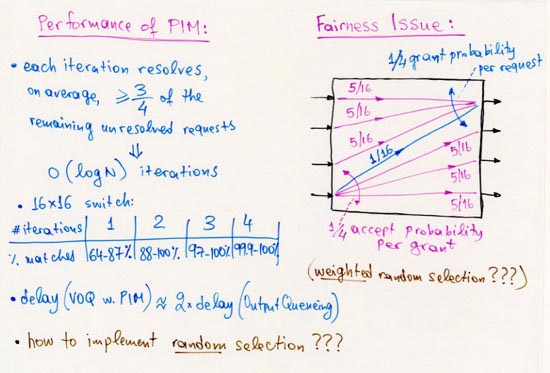 Performance of PIM:
• each iteration resolves,
on average, ≥ 3/4 of the
remaining unresolved requests
⇓
O(logN) iterations
• 16×16 switch:
#iterations | 1 | 2 | 3 | 4
% matches | 64-87% | 88-100% | 97-100% | 99.9-100%
• delay (VOQ w. PIM) ≈ 2 × delay (Output Queueing)
• how to implement random selection ???
Fairness Issue:
1/4 grant probability
per request
5/16
5/16
5/16
1/16
5/16
5/16
5/16
1/4 accept probability
per grant
(weighted random selection ???)